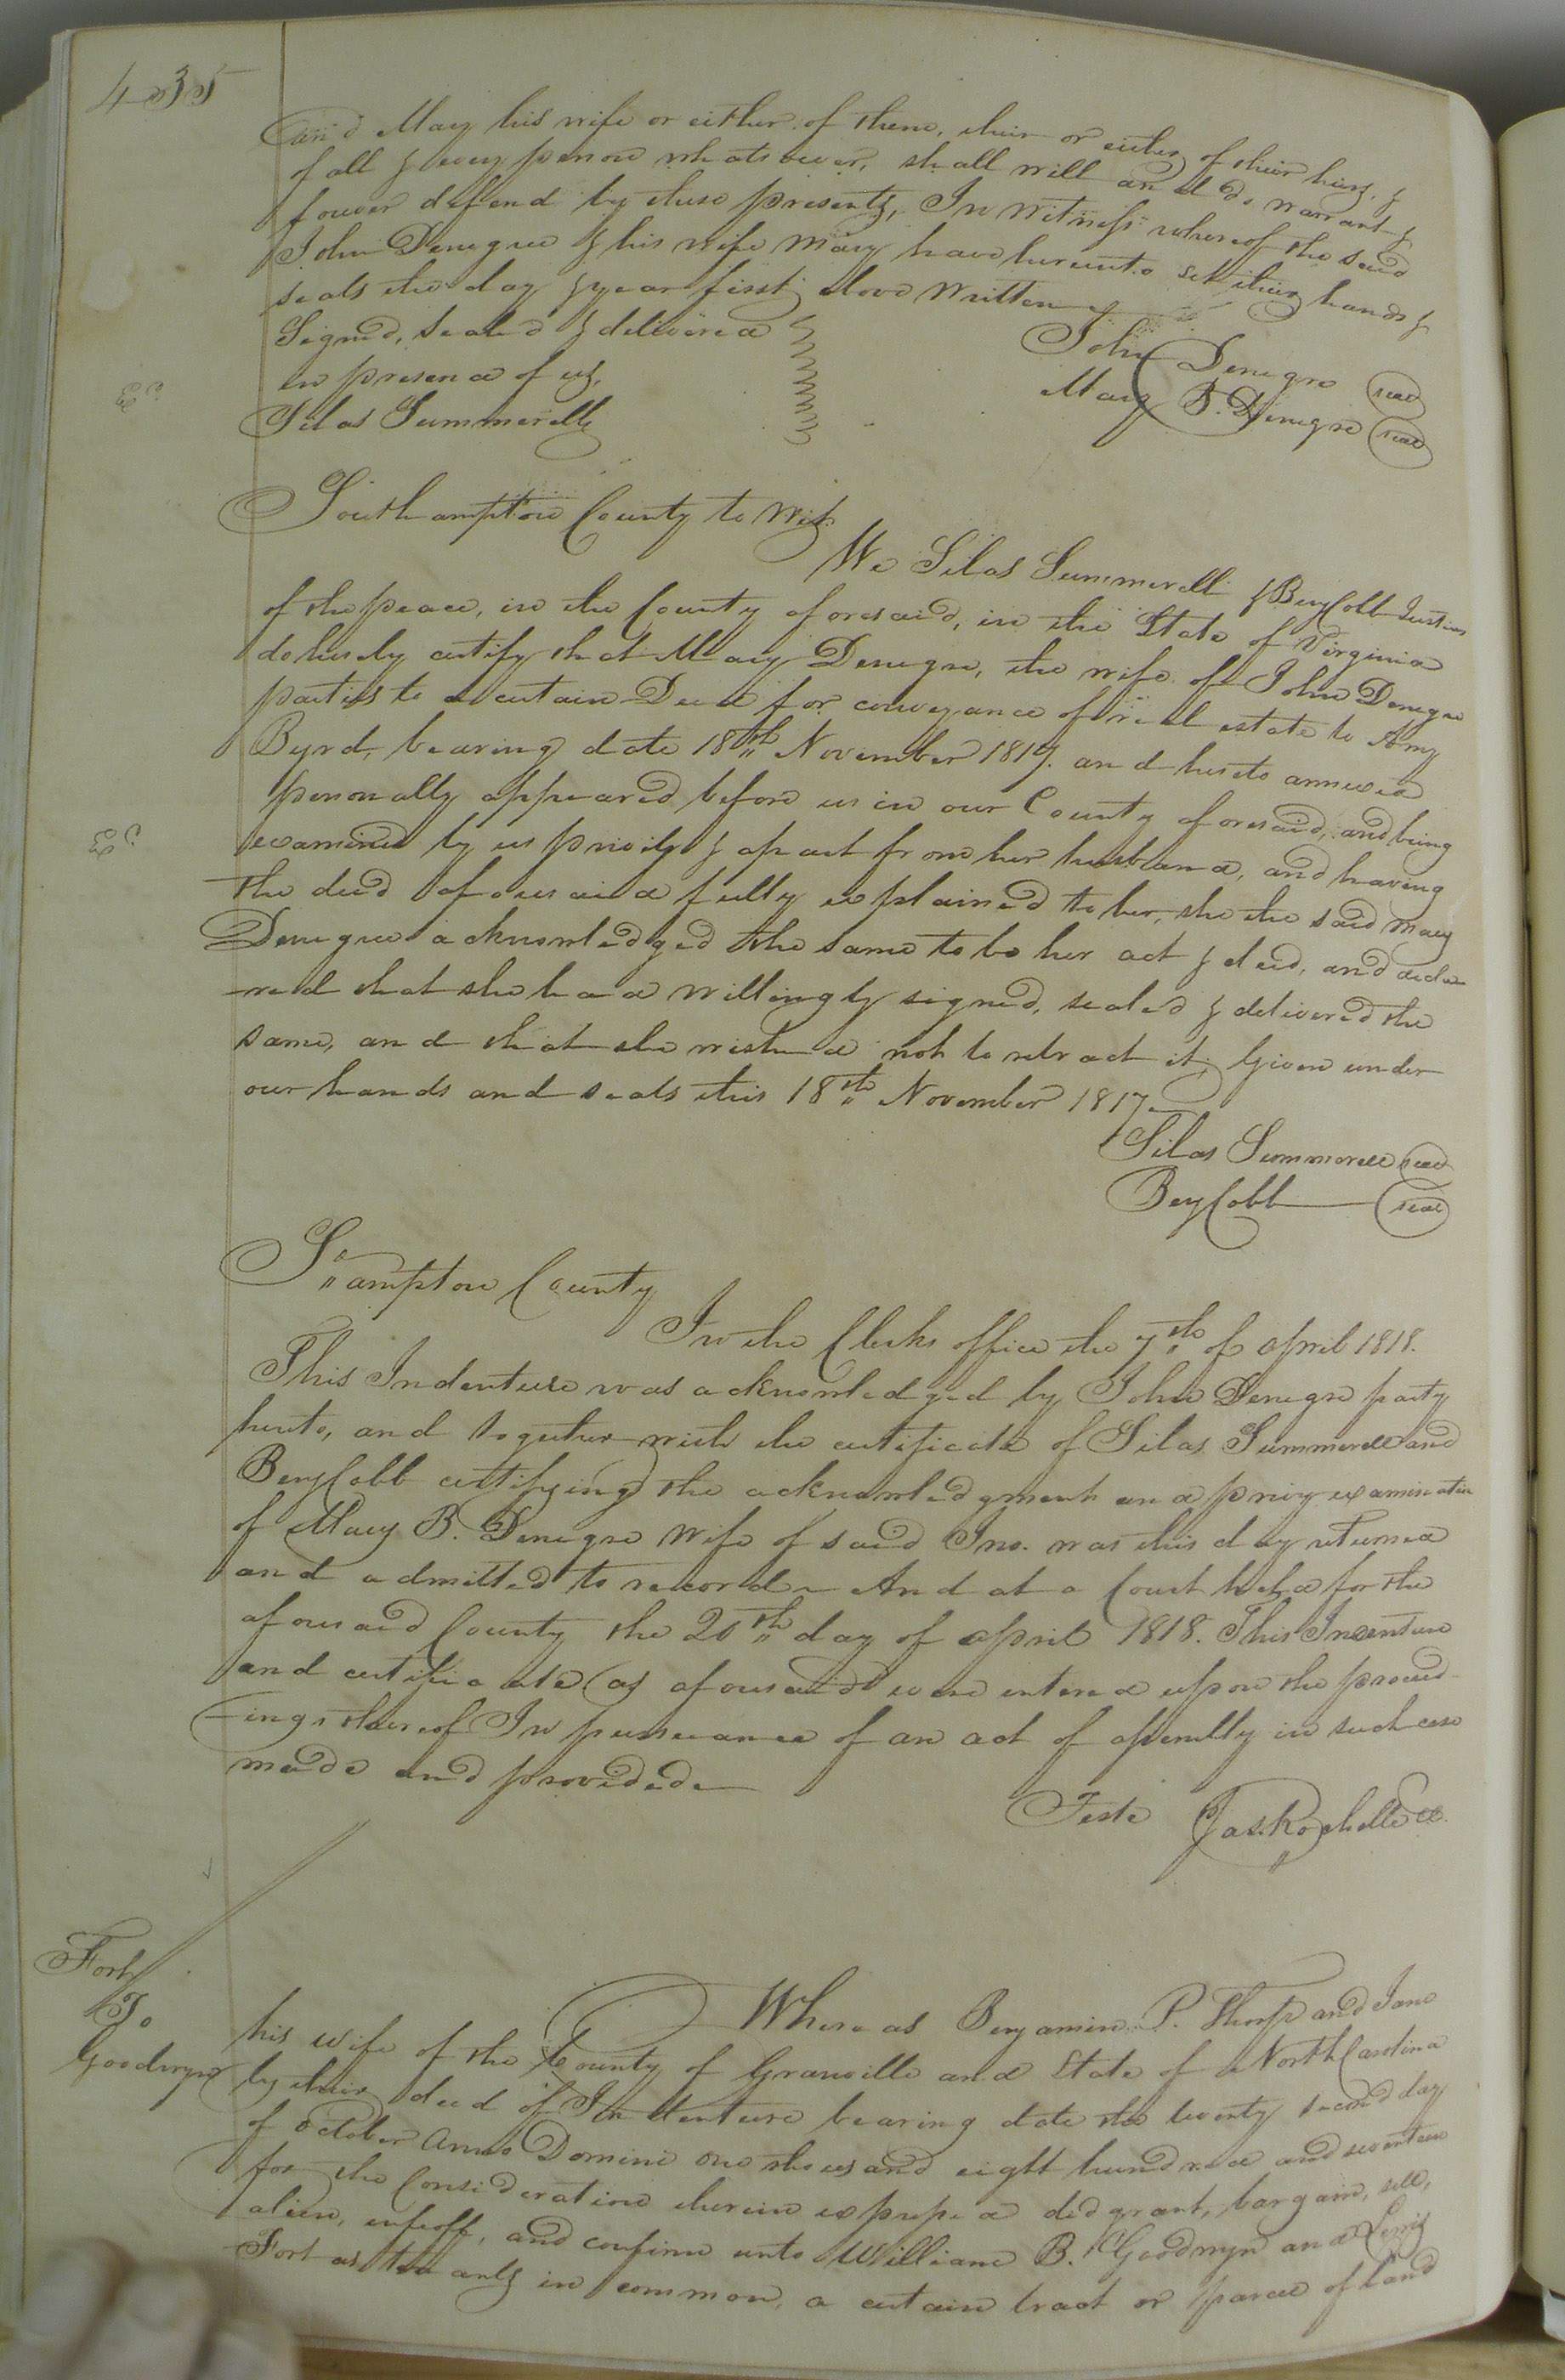 435
and Mary his wife or either of them, their or either of their heirs, &
of all & every person whatsoever, shall will and do warrant &
forever defend by these presents, In witness whereof the said
John Denegre & his wife Mary have hereunto set their hands &
seals the day & year first above written
Signed, sealed & delivered
in presence of us,
Silas Summerell
John Denegre seal
Mary B. Denegre seal
Southampton County to wit
We Silas Summerell & Benj Cobb Justices
of the peace, in the County aforesaid, in the State of Virginia
do hereby certify that Mary Denegre, the wife of John Denegre
parties to a certain Deed for conveyance of real estate to Amy
Byrd, bearing date 18th November 1817. and hereto annexed
personally appeared before us in our County aforesaid, and being
examined by us privily & apart from her husband, and having
the deed aforesaid fully explained to her, she the said Mary
Denegre acknowledged the same to be her act & deed, and decla-
-red that she had willingly signed, sealed & delivered the
same, and that she wished not to retract it, Given under
our hands and seals this 18th November 1817
Silas Summerell seal
Benj Cobb seal
So ampton County
In the Clerks office the 7th of April 1818.
This Indenture was acknowledged by John Denegre party
hereto, and together with the certificate of Silas Summerell and
Benj Cobb certifying the acknowledgment and privy examination
of Mary B. Denegre wife of said Jno. was this day returned
and admitted to record And at a Court held for the
aforesaid County the 20th day of April 1818. This Indenture
and certificate as aforesaid were entered upon the proceed-
-ings thereof In pursuance of an act of assembly in such case
made and provided
Teste Jas. Rochelle CC.
Fort
To
Goodwyn
Whereas Benjamin P. Thorp and Jane
his wife of the County of Granville and State of North Carolina
by their deed of Indenture bearing date the twenty second day
of October Anno Domini one thousand eight hundred and seventeen
for the Consideration therein expressed did grant, bargain, sell,
alien, enfeoff, and confirm unto William B. Goodwyn and Lewis
Fort as tenants in common, a certain tract or parcel of land